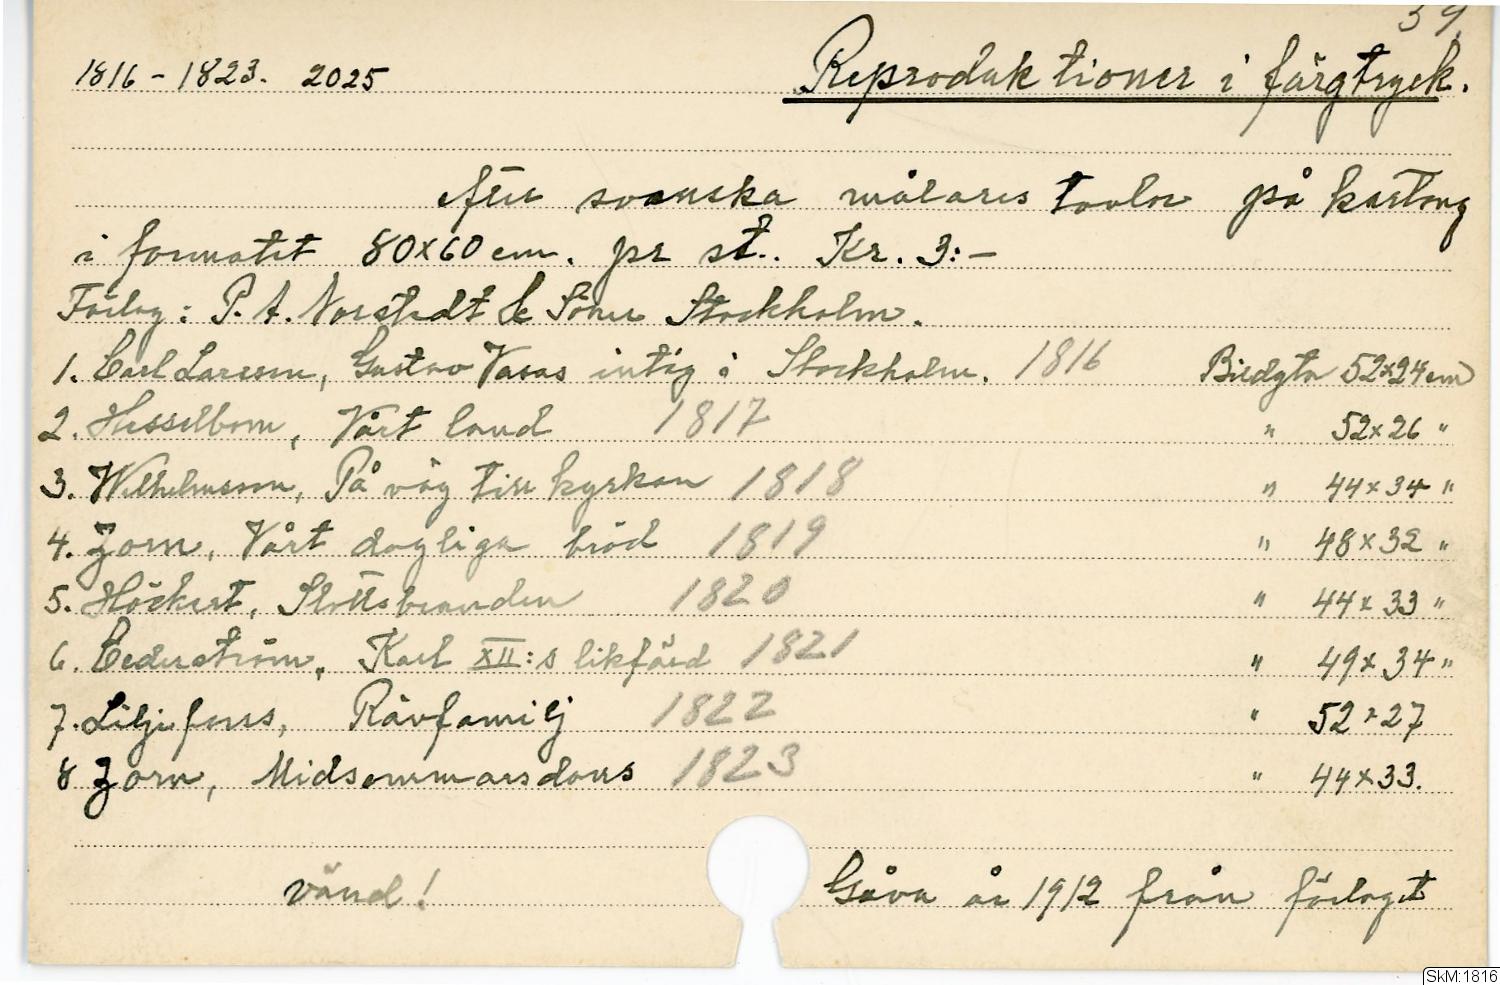 39.
1816-1823. 2025 Reproduktioner i färgtryck.
efter svenska målares tavlor på kartong
i formatet 80x60 cm. pr st.. Kr. 3:-
Förlag: P. A. Norstedt & Söner Stockholm.
1. Carl Larsson, Gustav Vasas intåg i Stockholm. 1816 Bildyta 52x24 cm
2. Hesselbom, Vårt land 1817 " 52x26 "
3. Wilhelmsson, På väg till kyrkan 1818 " 44x34 "
4. Zorn, Vårt dagliga bröd 1819 " 48x32 "
5. Höckert, Slottsbranden 1820 " 44x33 "
6. Cederström, Karl XII:s likfärd 1821 " 49x34 "
7. Liljefors, Rävfamilj 1822 " 52x27
8 Zorn, Midsommarsdans 1823 " 44x33.
vänd! Gåva år 1912 från förlaget
SkM:1816